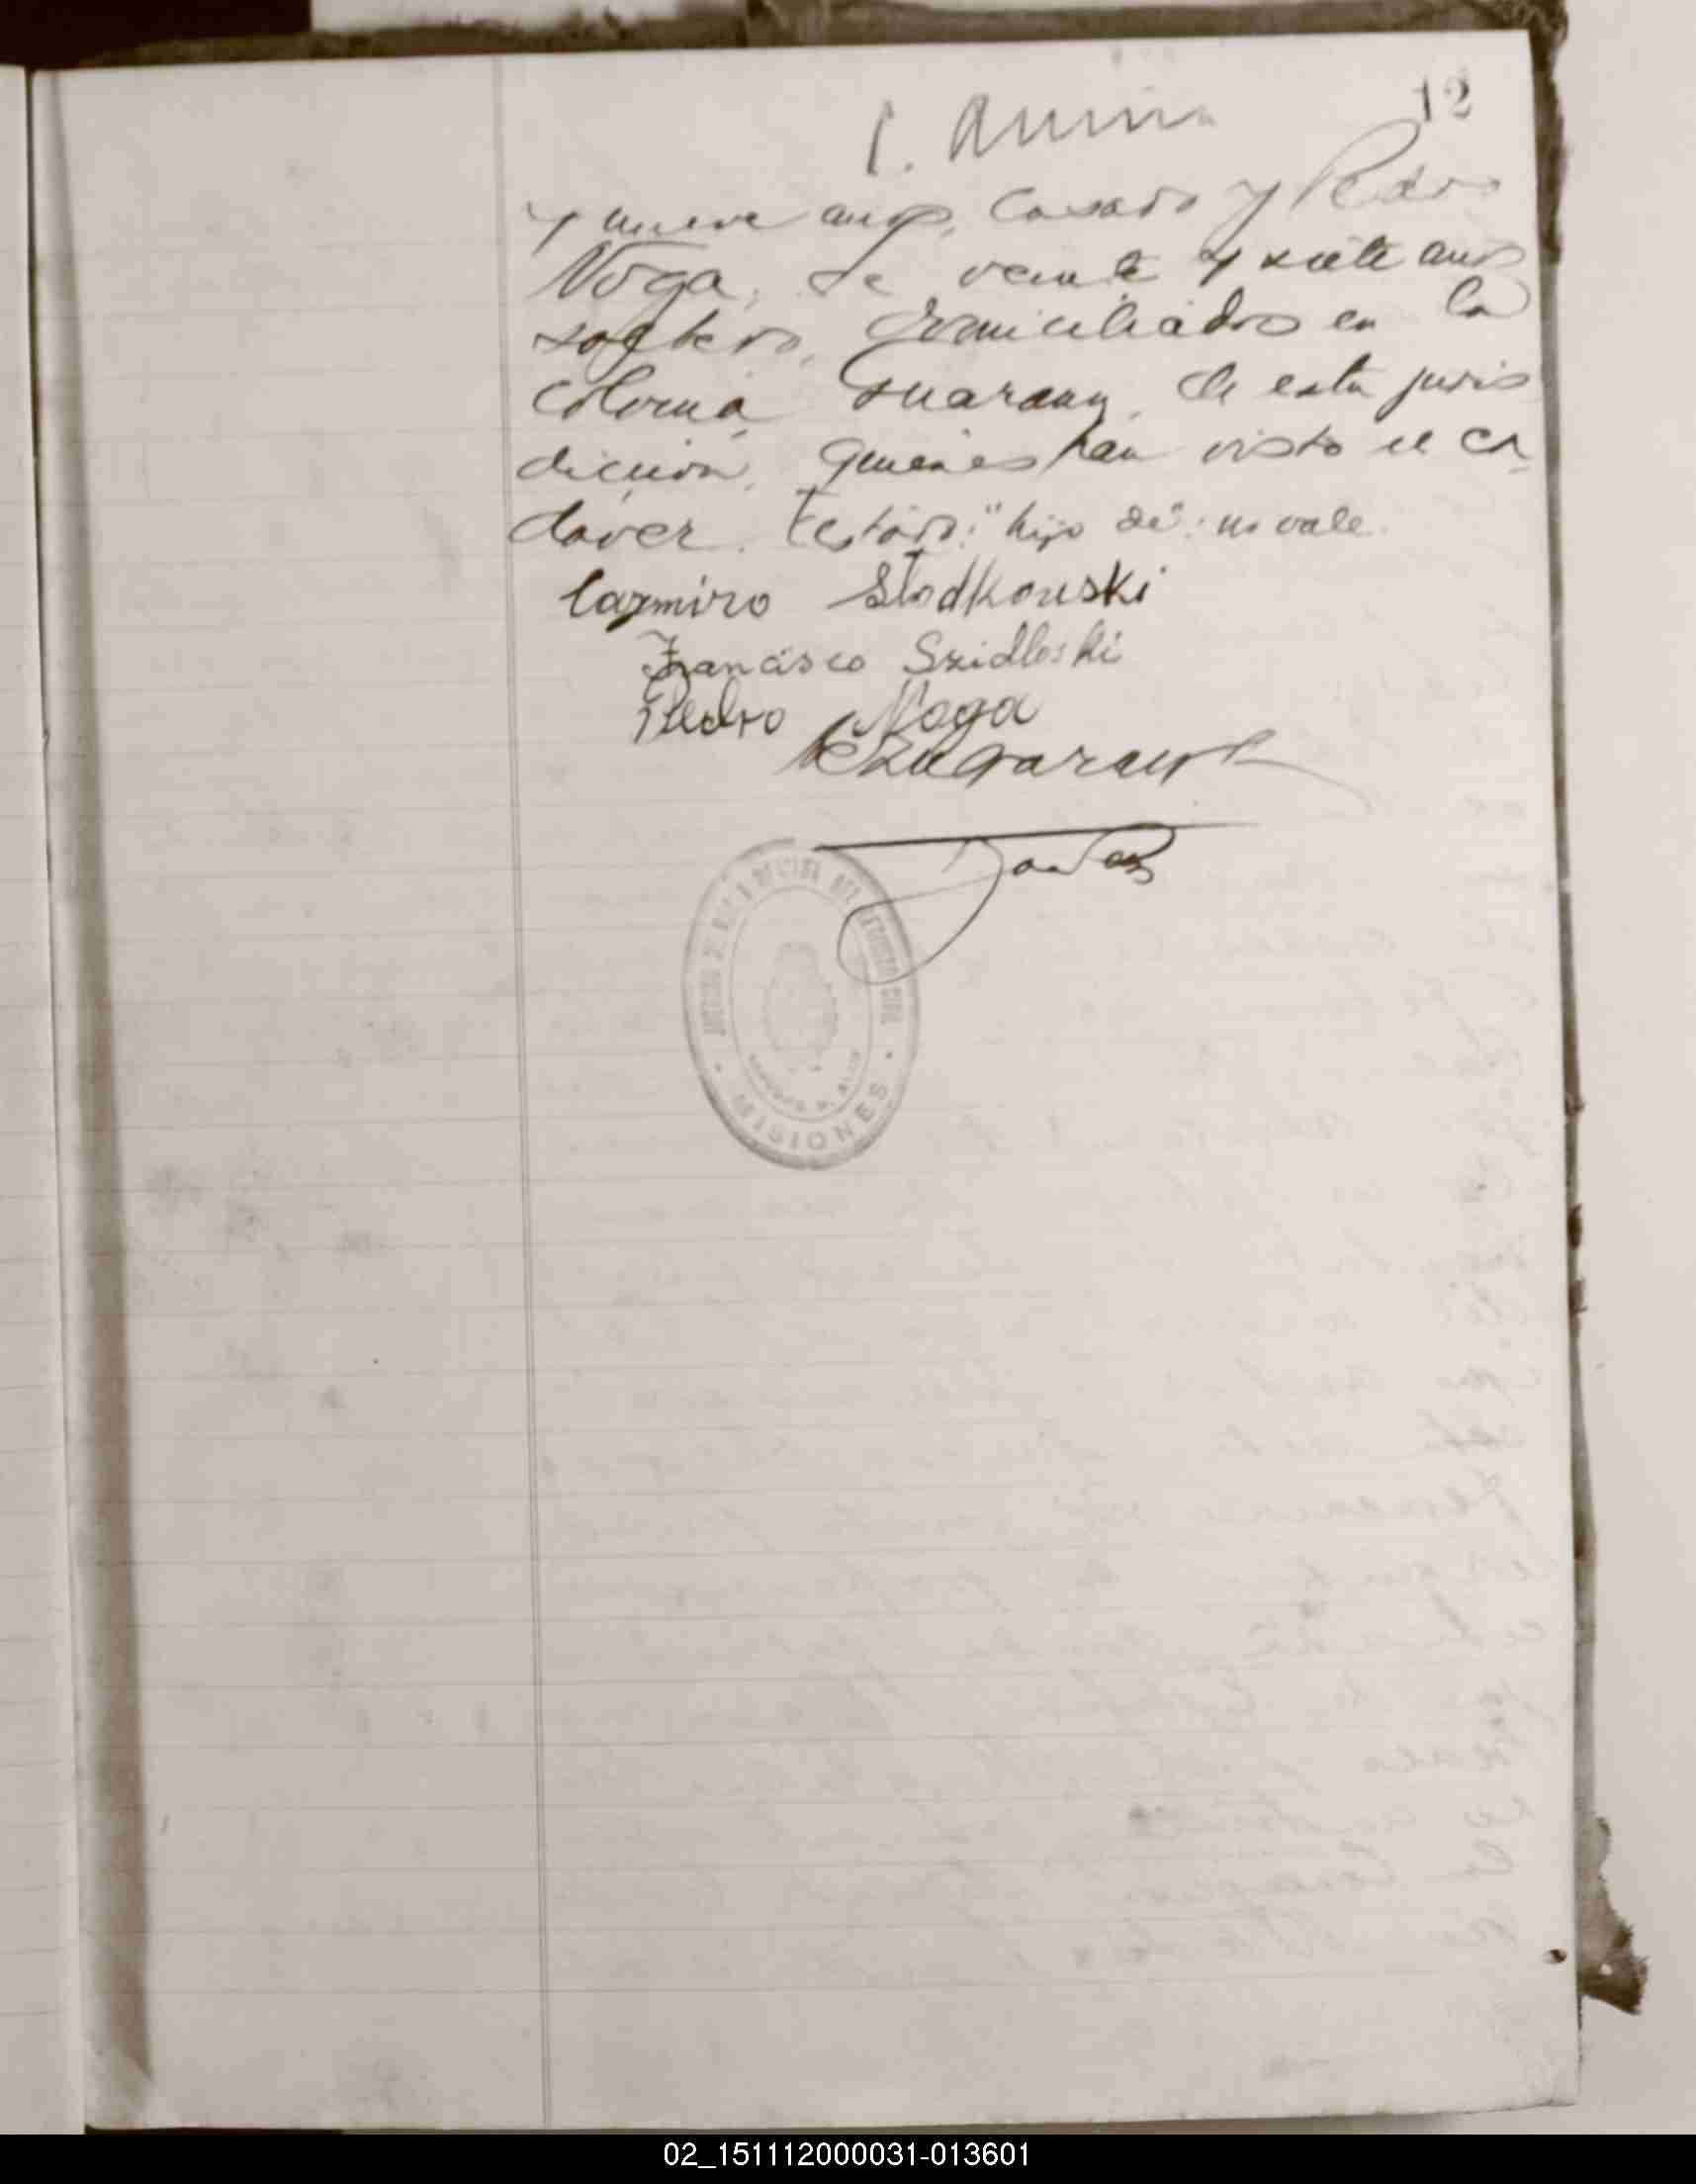 12
y nueve años, casado y Pedro
Noga, de veinte y siete años
soltero, domiciliados en la
colonia Guarany, de esta juris
dicción, quienes han visto el ca
daver. Testado: "hijo de": no vale.
Cazmiro Slodkouski
Francisco Szidloski
Pedro Noga
MISIONES
02_151112000031-013601